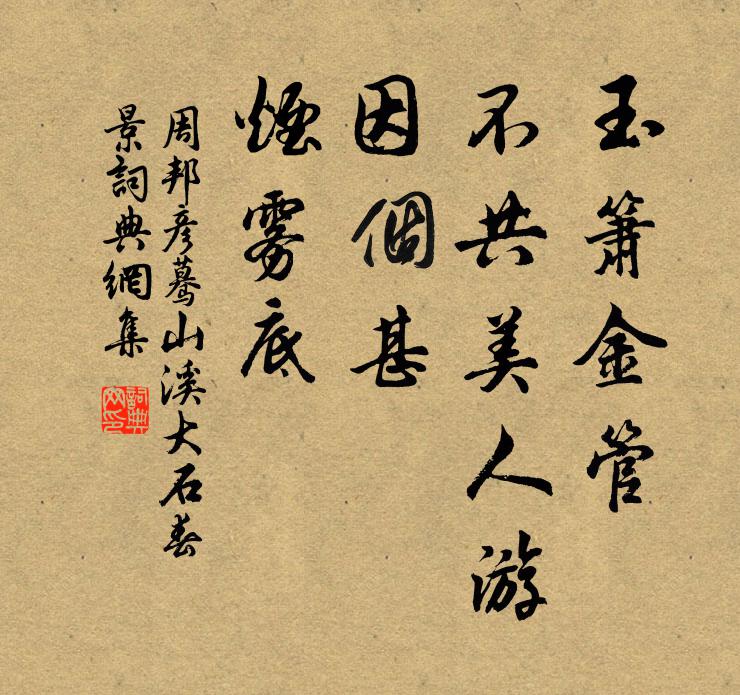 玉簫金管
不共美人游
因個甚
煙雾底
周邦彦驀山溪大石春
景詞典網集
詞典
网印